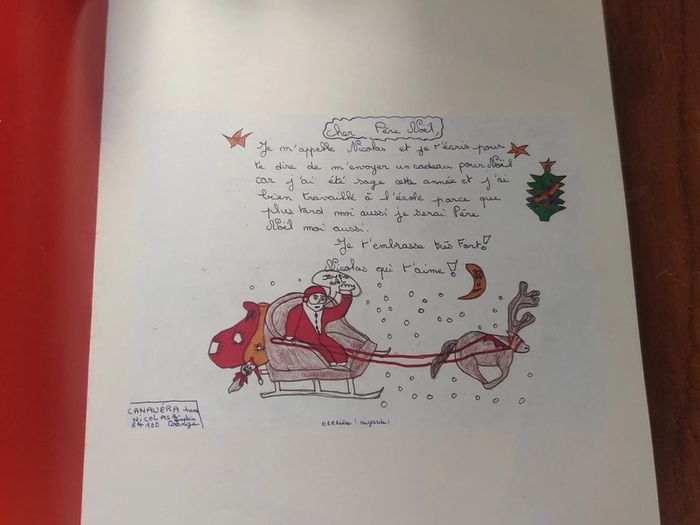 cher Père Noël,
Je m'appelle Nicolas et je t'écris pour
te dire de m'envoyer un cadeau pour Noël
car j'ai été sage cette année et j'ai
bien travaillé à l'école parce que
plus tard moi aussi je serai Père
Noël moi aussi.
Je t'embrasse très Fort!
Nicolas qui t'aime!
CANAVÉRA
NICOLAS
84100 Orange
DERRIÈRE! regarde!